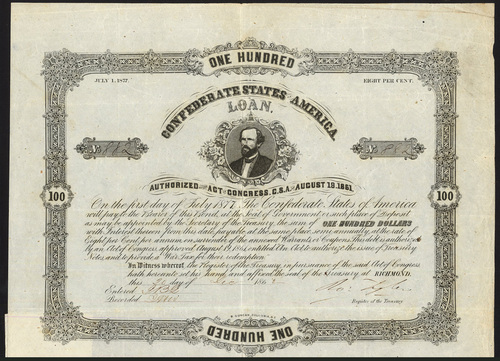 ONE HUNDRED
JULY 1, 1877.
EIGHT PER CENT.
CONFEDERATE STATES AMERICA
LOAN,
No 882
No 882
AUTHORIZED ACT CONGRESS, C.S.A. AUGUST 19, 1861.
100
100
On the first day of July 1877, The Confederate States of America
will pay to the Bearer of this Bond, at the Seat of Government or such place of Deposit
as may be appointed by the Secretary of the Treasury, the sum of ONE HUNDRED DOLLARS
with Interest thereon from this date payable at the same place semi annually, at the rate of
Eight per Cent per annum on surrender of the annexed Warrants or Coupons. This debt is authorized
by an Act of Congress, approved August 19, 1861, entitled An Act to authorize the issue of Treasury
Notes, and to provide a War Tax for their redemption.
In Witness whereof, the Register of the Treasury, in pursuance of the said Act of Congress
hath hereunto set his hand, and affixed the seal of the Treasury, at RICHMOND,
this day of 186
Entered
Recorded
Register of the Treasury
ONE HUNDRED